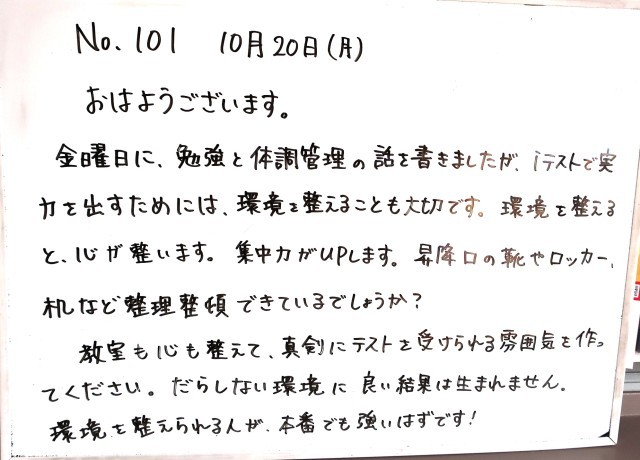 No. 101 10月20日(月)
おはようございます。
金曜日に、勉強と体調管理の話を書きましたが、iテストで実
力を出すためには、環境を整えることも大切です。環境を整える
と、心が整います。集中力がUPします。昇降口の靴やロッカー、
札など整理整頓できているでしょうか?
教室も心も整えて、真剣にテストを受けられる雰囲気を作っ
てください。だらしない環境に良い結果は生まれません。
環境を整えられる人が、本番でも強いはずです!